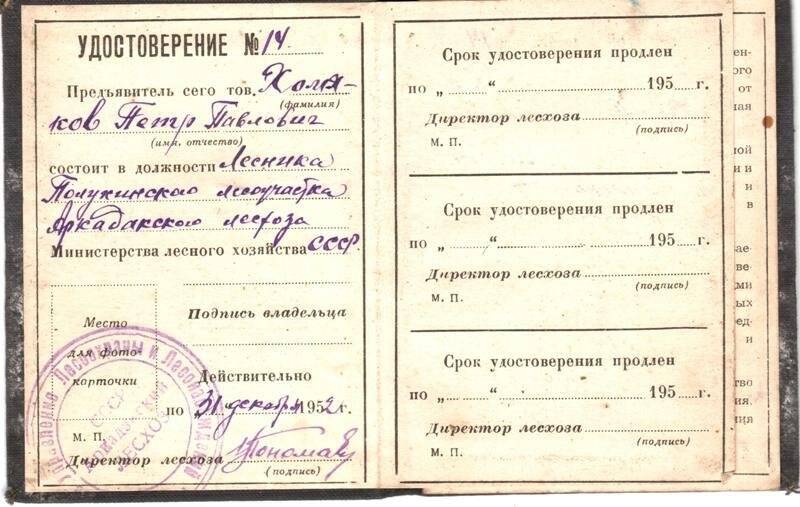 УДОСТОВЕРЕНИЕ № 14
Предъявитель сего тов. Хомя-
(фамилия)
ков Петр Павлович
(имя, отчество)
состоит в должности Лесника
лесоучастка
Аркадакского лесхоза
Министерства лесного хозяйства СССР
Место
для фото-
карточки
Подпись владельца
Действительно
по „31 декабря 1952 г.
М. П.
Директор лесхоза
(подпись)
Управление Лесоохраны и
СССР
Аркадакский
ЛЕСХОЗ
Срок удостоверения продлен
по „ “ 195 г.
Директор лесхоза
(подпись)
М. П.
Срок удостоверения продлен
по „ “ 195 г.
Директор лесхоза
(подпись)
М. П.
Срок удостоверения продлен
по „ “ 195 г.
Директор лесхоза
(подпись)
М. П.